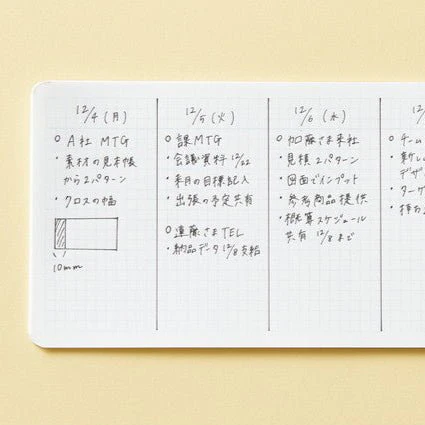 12/4 (月)
○ A社 MTG
・素材の見本帳
から2パターン
・クロスの幅
10mm
12/5 (火)
○ 課MTG
・会議資料 12/22
・来月の目標記入
・出張の予定共有
○ 遠藤さまTEL
・納品データ 12/8 支給
12/6 (水)
○ 加藤さま来社
・見積2パターン
・図面でインプット
・参考商品提供
・概算スケジュール
共有 12/8 まで
○ チーム
・新しい
デザ
・ターゲ